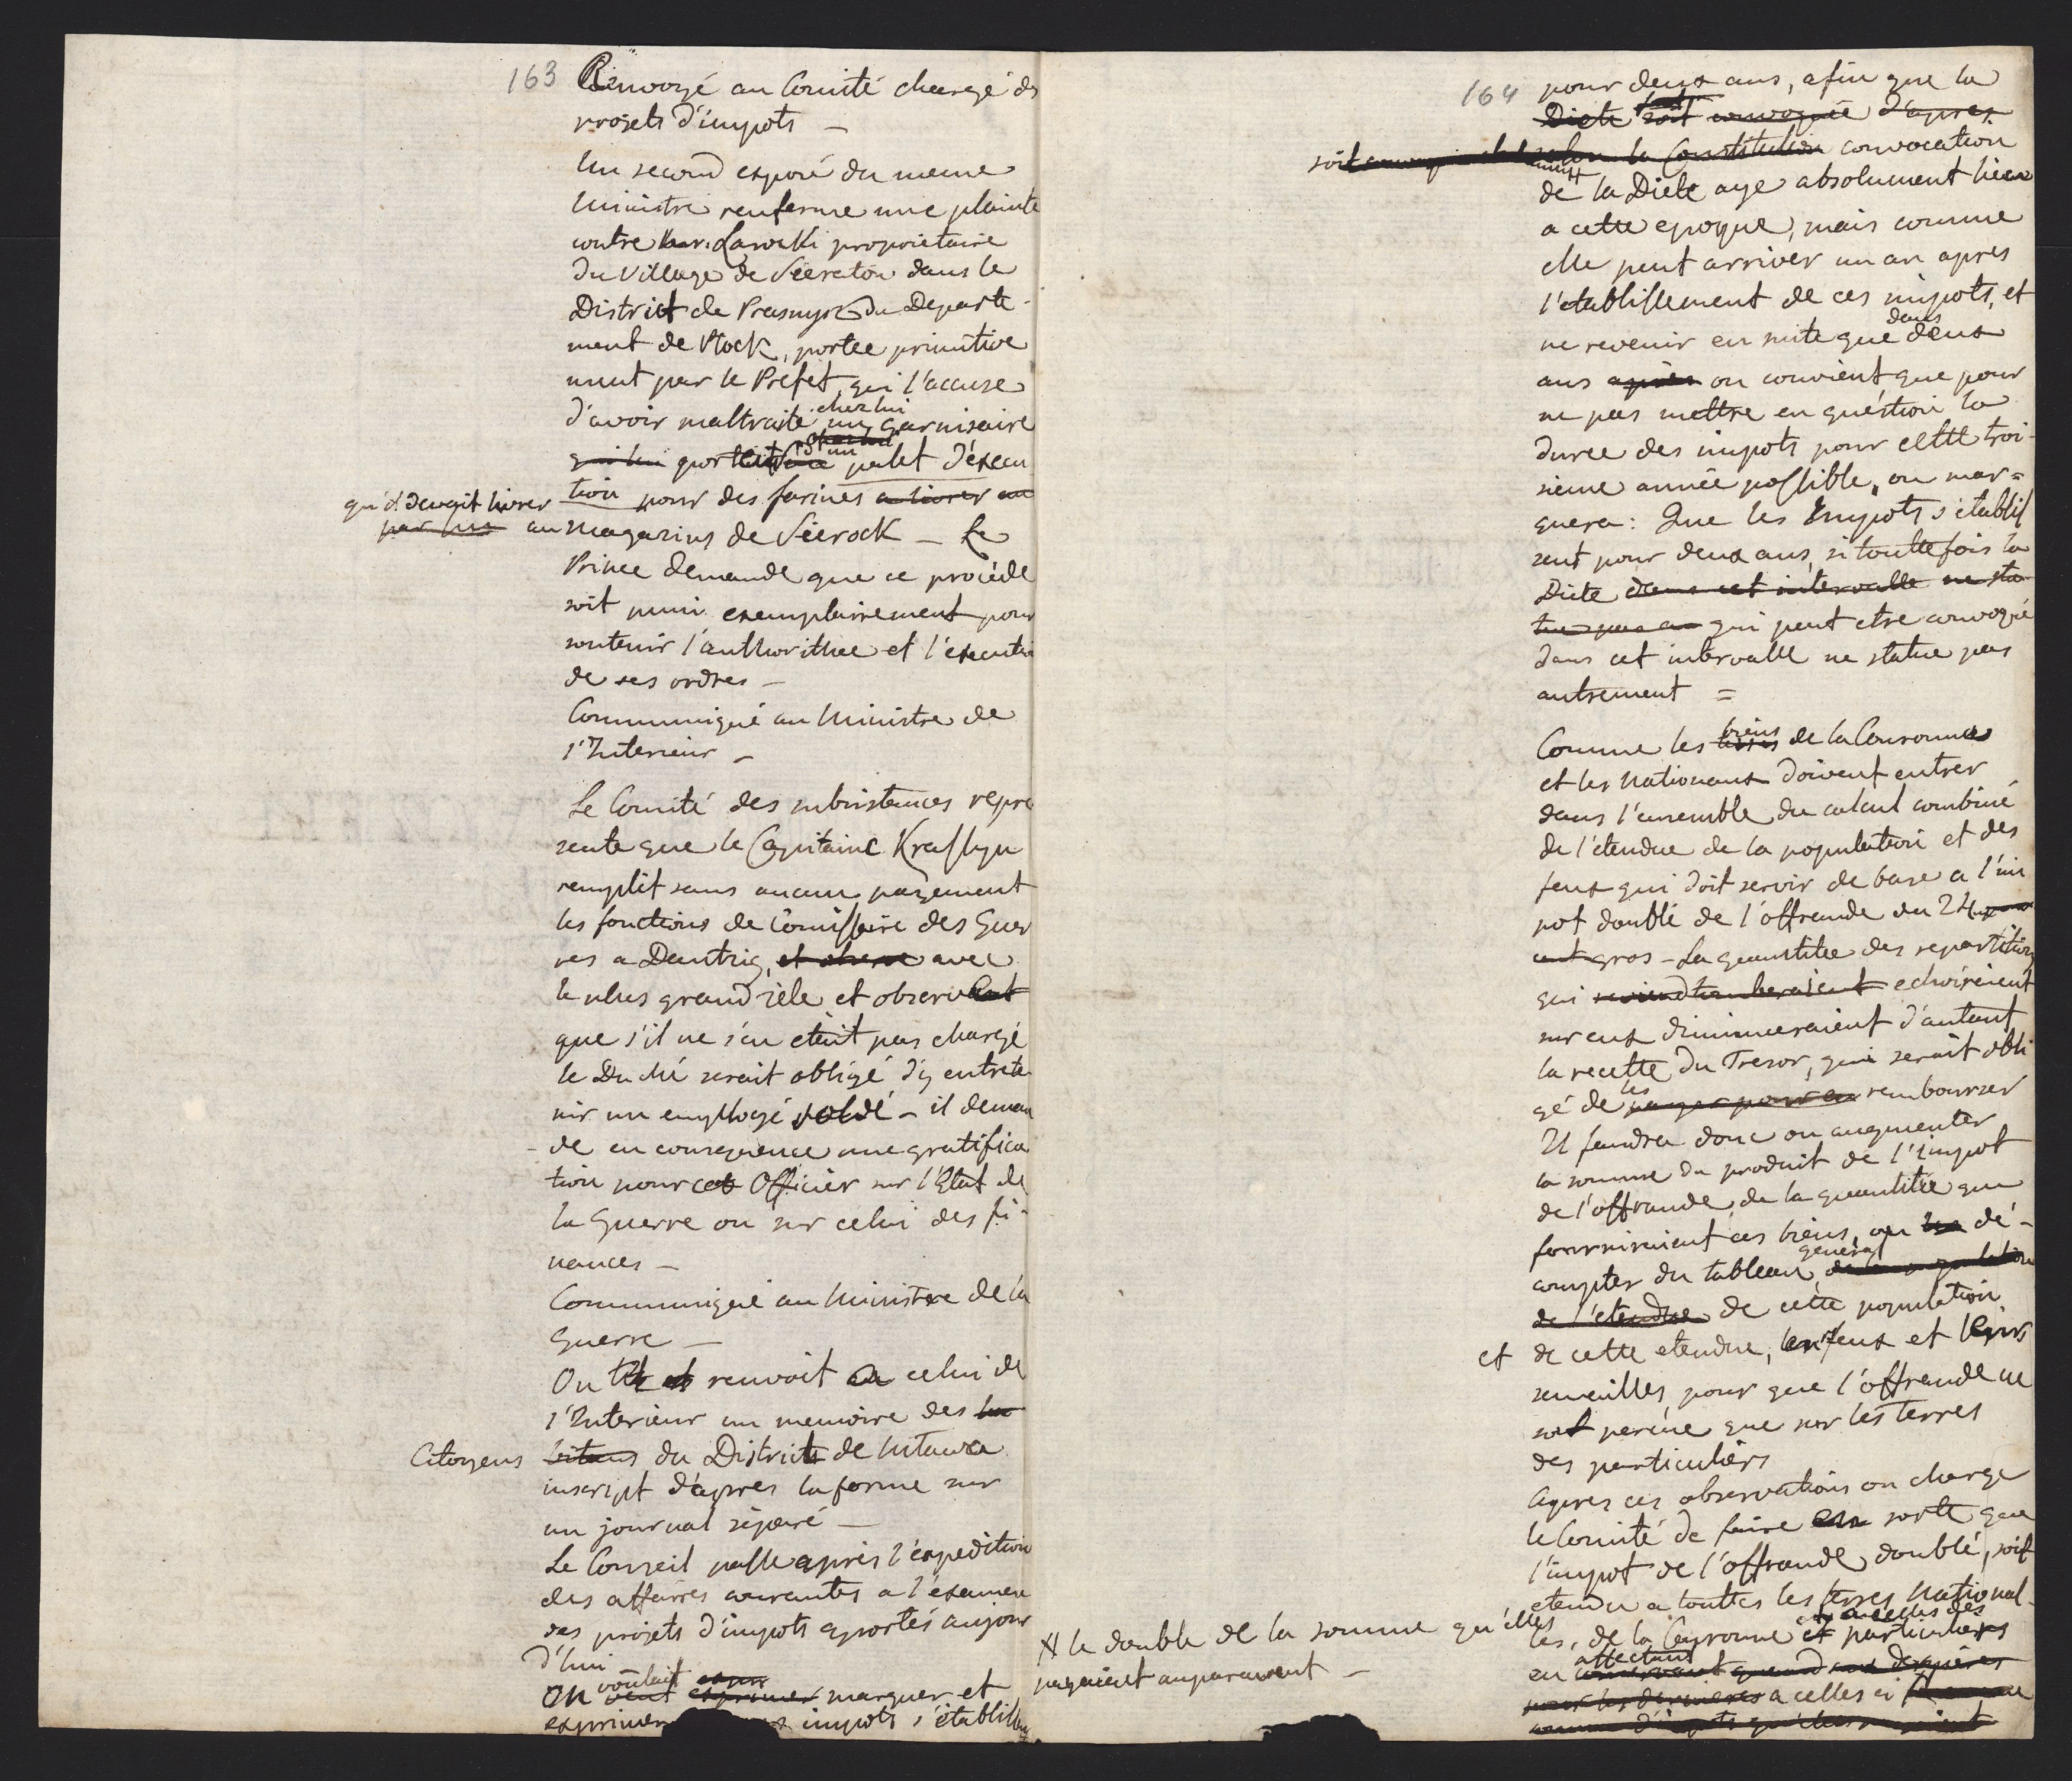 163
Renvoyé au Comité chargé ds
projets d'impots —
Un second exposé du meme
Ministre renferme une plainte
contre Laroıki proprietaire
du Village de dans le
District de Prasnysz du Departe-
ment de Plock, portee primitive
ment par le Prefet, qui l'accuse
chez lui
d'avoir maltraité un garnisaire
qui lui portait un palet d'éxecu
tion pour des farines a livrer au
qu'il devait livrer
par lui au Magazins de Sierock — Le
Prince demande que ce procédé
soit puni exemplairement pour
soutenir l'authorithee et l'éxecutio
de ses ordres —
Communiqué au Ministre de
l'Interieur —
Le Comité des subsistances repre
sente que le Capitaine
remplit sans aucun payement
les fonctions de Comissaire des Guer
res a Dantzig, et observe avec
le plus grand zèle et observant
que s'il ne s'en etait pas chargé
le Duché serait obligé d'y entrete
nir un employé soldé — il deman
- de en consequence une gratifica
tion pour cet Officier sur l'Etat de
la Guerre ou sur celui des fi-
nances —
Communiqué au Ministre de la
Guerre —
On renvoit a celui de
l'Interieur un memoire des ha
Citoyens bitans du District de Mlawa
inscript d'apres la forme sur
un journal séparé —
Le Conseil passe après l'expedition
des affaires courantes a l'éxamen
des projets d'impots aportés aujour
d'hui
voulait
On veut exprimer marquer et
exprimer impots s'établiss
164
pour deux ans, afin que la
Diete soit convoquée d'apres
selon la Constitution convocation
de la Diete aye absolument lieu
a cette epoque, mais comme
elle peut arriver un an apres
l'etablissement de ces impots, et
dans
ne revenir en suite que deux
ans après on convient que pour
ne pas mettre en quéstion la
duree des impots pour cette troi-
sieme année possible, on mar=
quera: Que les Impots s'établis
sent pour deux ans, si toutte fois la
Diete dans cet intervalle ne sta-
tue pas au qui peut etre convoquée
dans cet intervalle ne statue pas
autrement =
biens
Comme les terres de la Couronne
et les Nationaux doivent entrer
dans l'ensemble du calcul combiné
de l'etendue de la population et des
feux qui doit servir de base a l'im
pot doublé de l'offrande du 24
gros — La quantitée des repartition
qui echoiraient
sur eux diminueraient d'autant
la recette du Tresor, qui serait obli
les
gé de payer pour eux rembourser
Il faudra donc ou augmenter
la somme du produit de l'impot
de l'offrande, de la quantitée que
fourniraient ces biens, ou les dé-
general
compter du tableau, de la population
de l'etendue de cette population
et de cette etendue, les feux et leurs
semailles, pour que l'offrande ne
soit percue que sur les terres
des particuliers
Apres ces observations on charge
le Comité de faire en sorte que
l'impot de l'offrande, doublé, soit
etendu a touttes les terres National-
a celles des
les, de la Couronne et particuliers
affectant
en
pour les dernieres a celles ci
# le double de la somme qu'elles
payaient auparavant —